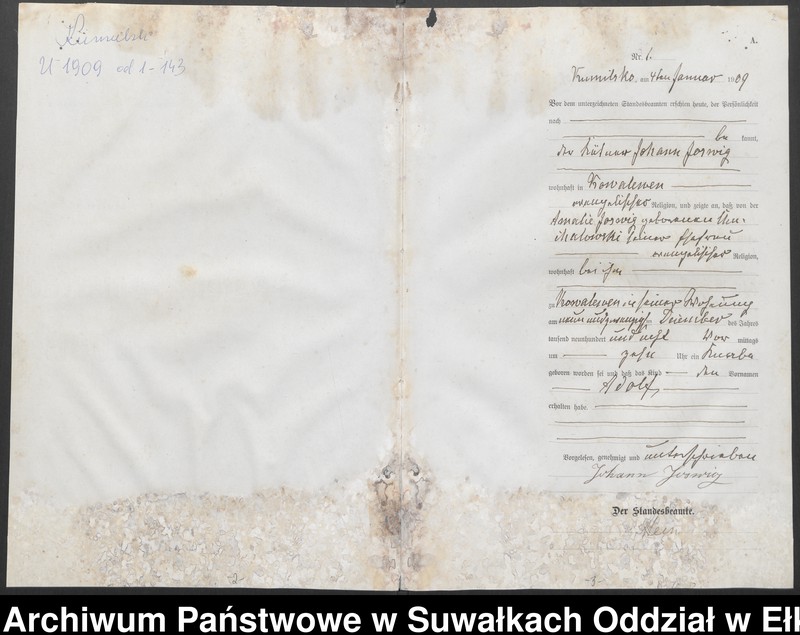 Kumilsko
U 1909 od 1-143
A.
Nr. 1.
Kumilsko, am 4ten Januar 1909
Vor dem unterzeichneten Standesbeamten erschien heute, der Persönlichkeit
nach
be kannt,
der Johann Joswig
wohnhaft in Kowalewen
evangelischer Religion, und zeigte an, daß von der
Amalie Joswig geborenen
seiner Ehefrau
evangelischer Religion,
wohnhaft bei ihm
zu Kowalewen in seiner Wohnung
am neun und zwanzigsten Dezember des Jahres
tausend neunhundert und acht Vor mittags
um zehn Uhr ein Knabe
geboren worden sei und daß das Kind den Vornamen
Adolf
erhalten habe
Vorgelesen, genehmigt und unterschrieben
Johann Joswig
Der Standesbeamte.
Archiwum Państwowe w Suwałkach Oddział w Eł